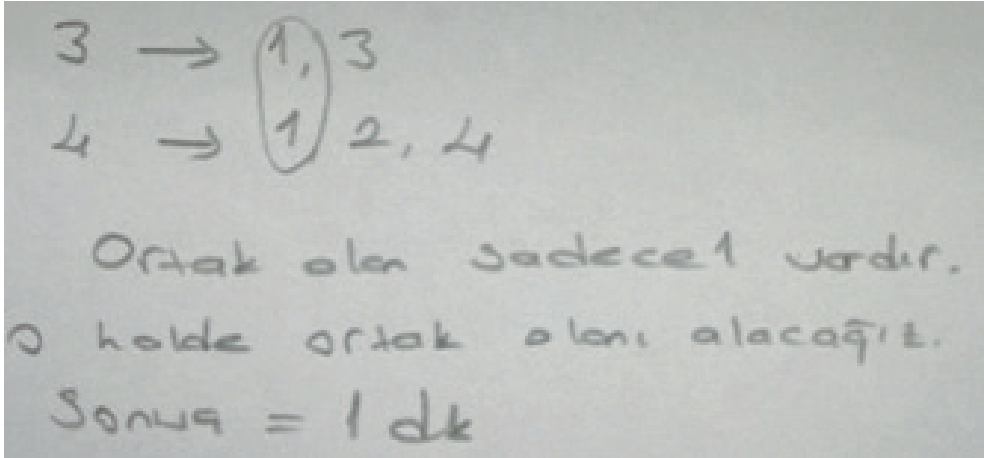 3 → 1, 3
4 → 1 2, 4
Ortak olan sadece 1 vardır.
O halde ortak olanı alacağız.
Sonuç = 1 dk